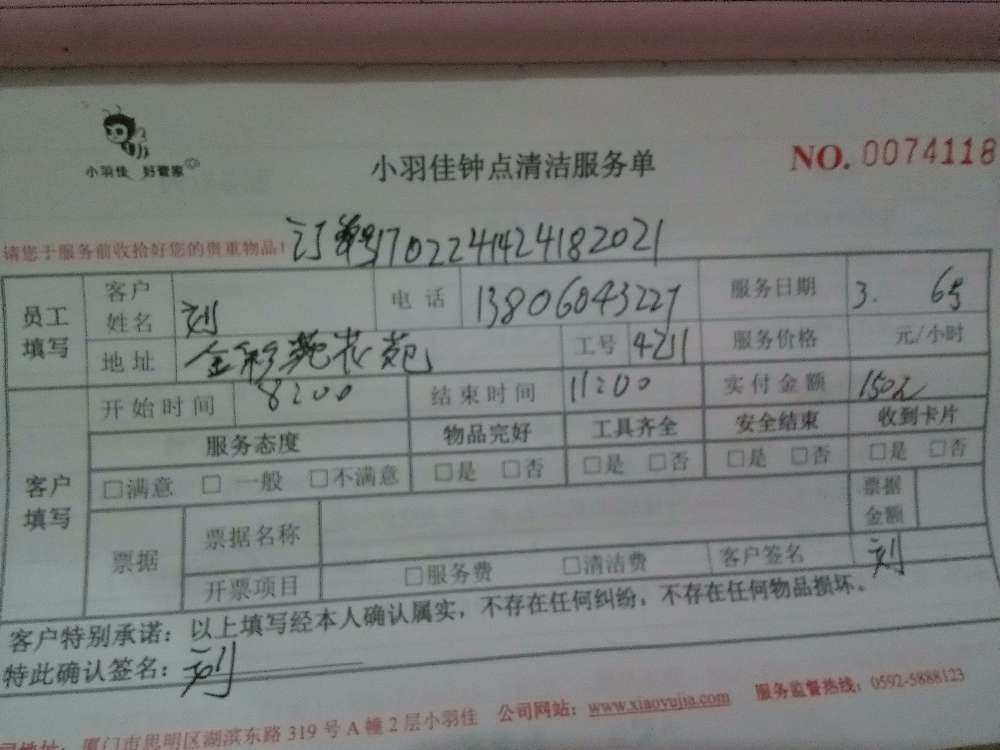 小羽佳 好管家
小羽佳钟点清洁服务单
NO. 0074118
请您于服务前收拾好您的贵重物品!
订单号1702241424182021
员工填写 客户姓名 刘 电话 13806043227 服务日期 3. 6号
地址 金彩花苑 工号 4211 服务价格 元/小时
客户填写 开始时间 8:00 结束时间 11:00 实付金额 150元
服务态度 物品完好 工具齐全 安全结束 收到卡片
□满意 □一般 □不满意 □是 □否 □是 □否 □是 □否 □是 □否
票据 票据名称 票据金额
开票项目 □服务费 □清洁费 客户签名 刘
客户特别承诺:以上填写经本人确认属实,不存在任何纠纷,不存在任何物品损坏。
特此确认签名:刘
公司地址:厦门市思明区湖滨东路319号A幢2层小羽佳 公司网站:www.xiaoyujia.com 服务监督热线:0592-5888123